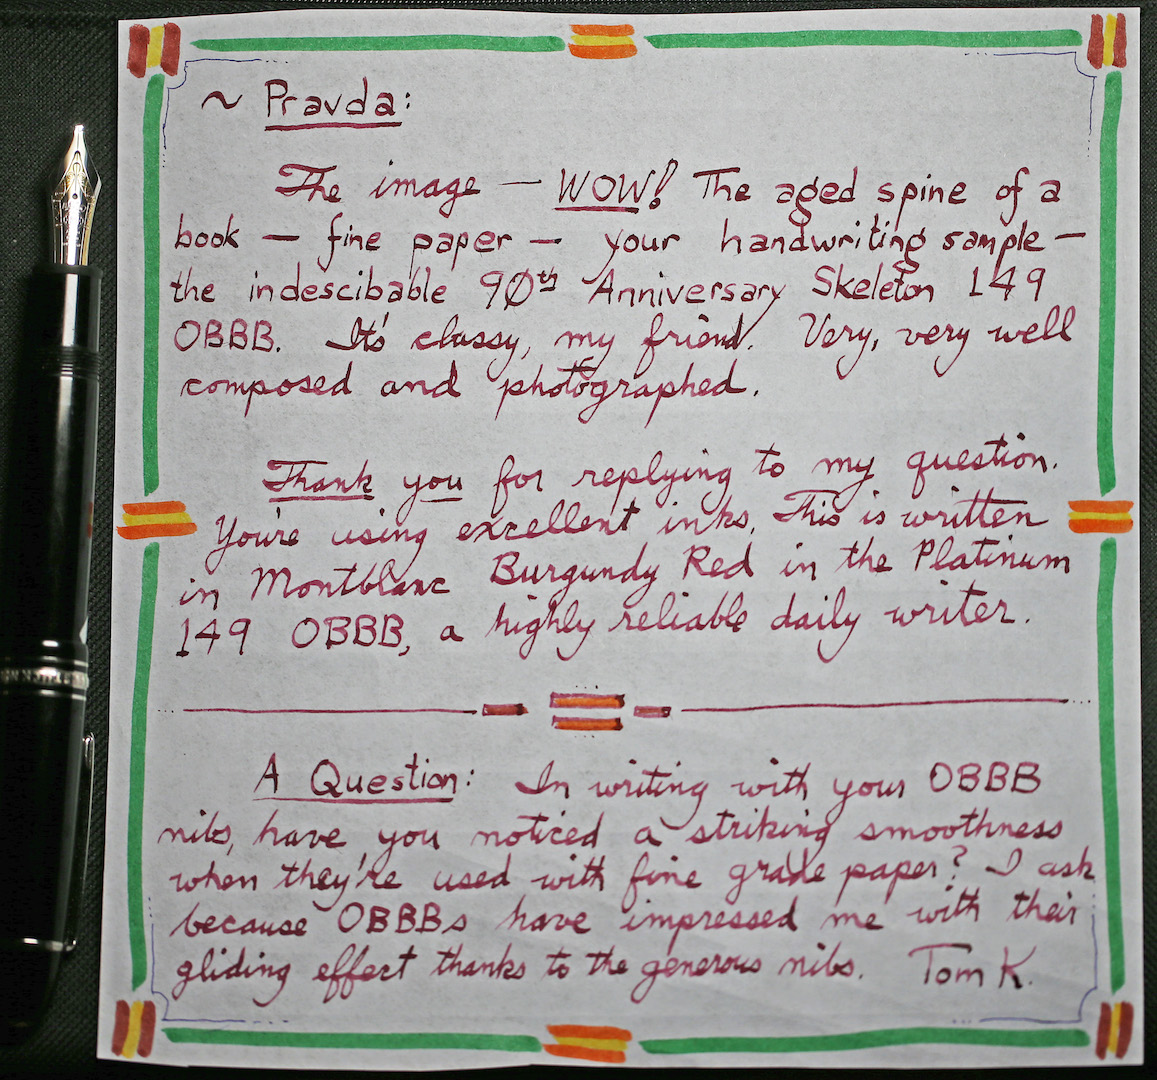 ~ Pravda:
The image — WOW! The aged spine of a
book — fine paper — your handwriting sample —
the indescibable 90th Anniversary Skeleton 149
OBBB. It's classy, my friend. Very, very well
composed and photographed.
Thank you for replying to my question.
You're using excellent inks. This is written
in Montblanc Burgundy Red in the Platinum
149 OBBB, a highly reliable daily writer.
A Question: In writing with your OBBB
nibs, have you noticed a striking smoothness
when they're used with fine grade paper? I ask
because OBBBs have impressed me with their
gliding effect thanks to the generous nibs. Tom K.